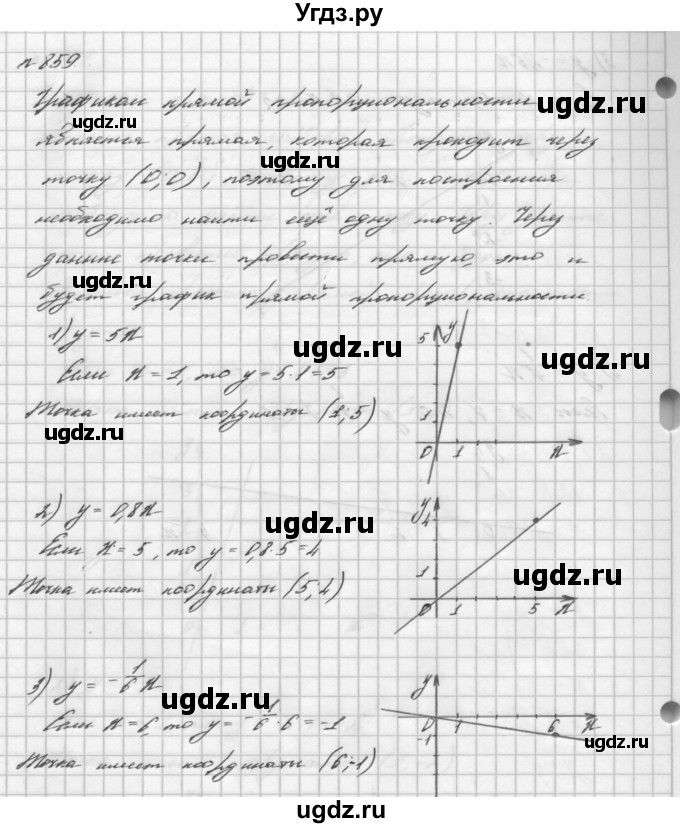 Угдз.ру
№ 859
Графиком прямой пропорциональности
является прямая, которая проходит через
точку (0;0), поэтому для построения
необходимо найти ещё одну точку. Через
данные точки провести прямую, это и
будет график прямой пропорциональности.
1) y = 5x
Если x = 1, то y = 5·1 = 5
Точка имеет координаты (1; 5)
5 y
1
0 1 x
2) y = 0,8x
Если x = 5, то y = 0,8·5 = 4
Точка имеет координаты (5; 4)
y
4
1
0 1 5 x
3) y = -1/6 x
Если x = 6, то y = -1/6·6 = -1
Точка имеет координаты (6; -1)
y
0 1 6 x
-1
ugdz.ru
ugdz.ru
ugdz.ru
ugdz.ru
ugdz.ru
ugdz.ru
ugdz.ru
ugdz.ru
ugdz.ru
ugdz.ru
ugdz.ru
ugdz.ru
ugdz.ru
ugdz.ru